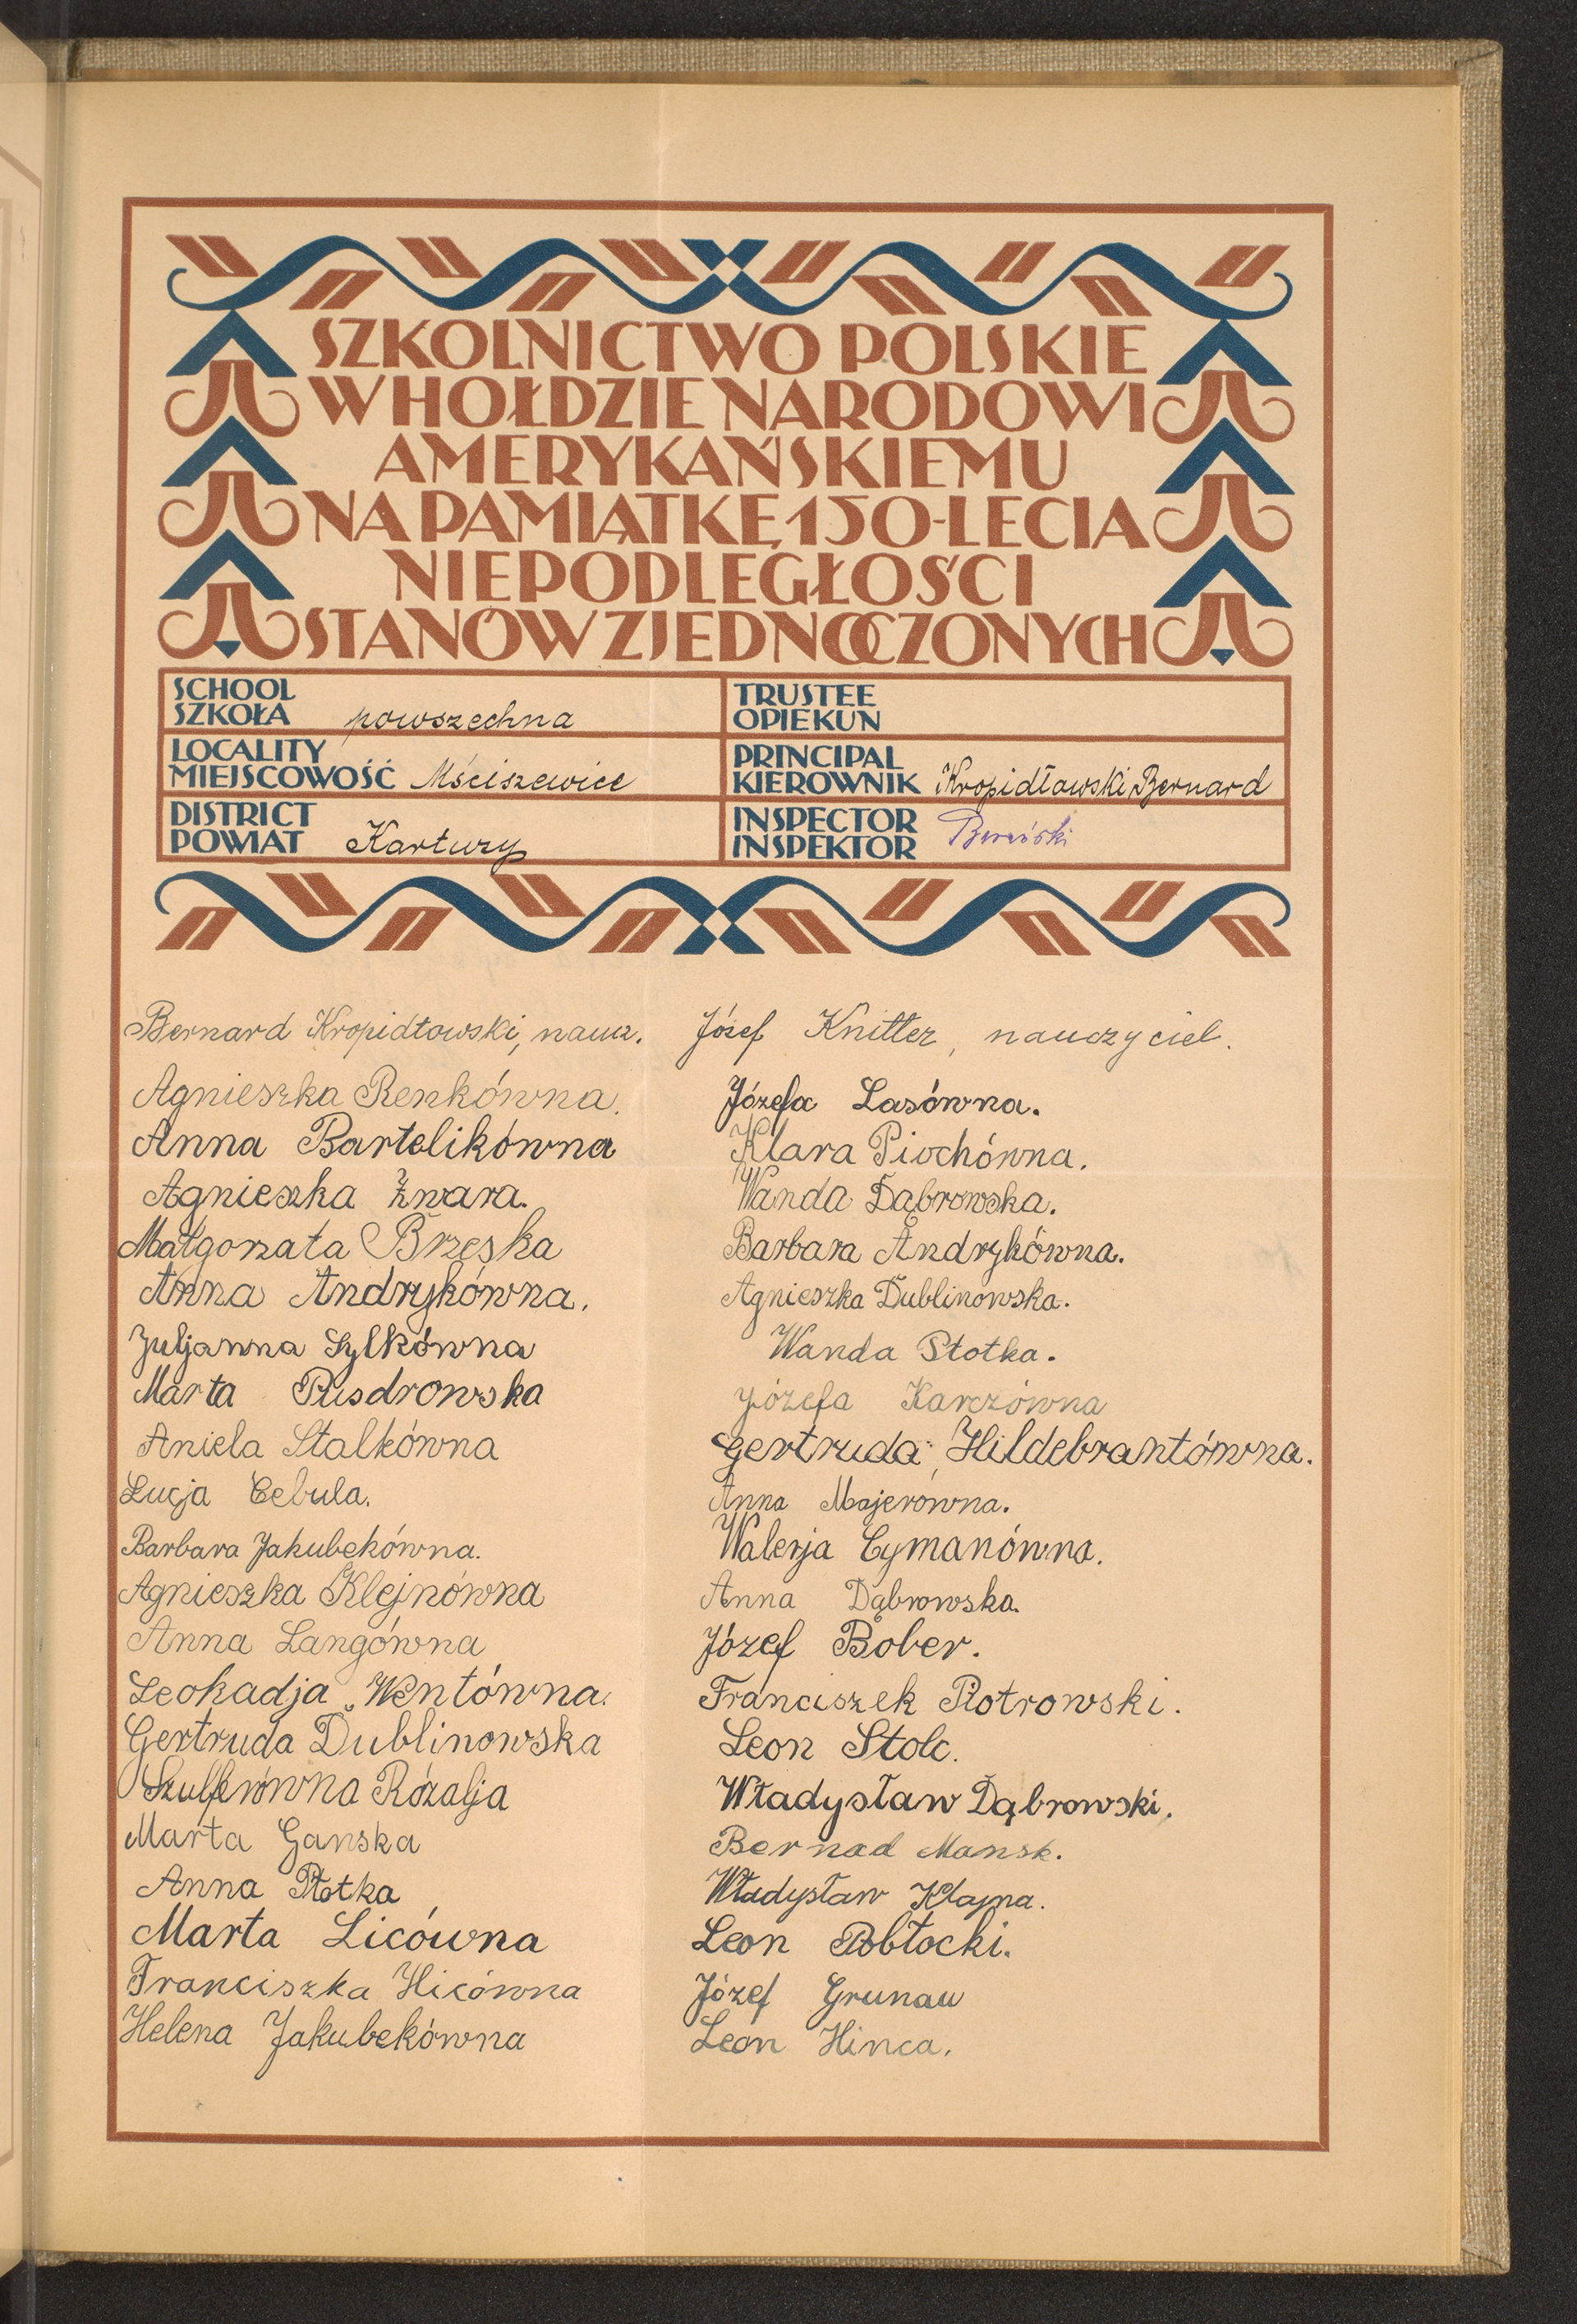 SZKOLNICTWO POLSKIE
W HOŁDZIE NARODOWI
AMERYKAŃSKIEMU
NA PAMIĄTKĘ 150-LECIA
NIEPODLEGŁOŚCI
STANÓW ZJEDNOCZONYCH
SCHOOL
SZKOŁA powszechna
TRUSTEE
OPIEKUN
LOCALITY
MIEJSCOWOŚĆ Mściszewice
PRINCIPAL
KIEROWNIK Kropidłowski Bernard
DISTRICT
POWIAT Kartuzy
INSPECTOR
INSPEKTOR
Bernard Kropidłowski, naucz.
Agnieszka Renkówna.
Anna Bartelikówna
Agnieszka Żwara.
Małgorzata Brzeska
Anna Andrykówna.
Juljanna Sylkówna
Marta Pusdrowska
Aniela Stalkówna
Łucja Cebula.
Barbara Jakubekówna.
Agnieszka Klejnówna
Anna Langówna
Leokadja Wentówna.
Gertruda Dublinowska
Szulferówna Rózalja
Marta Ganska
Anna Płotka
Marta Licówna
Franciszka Hicówna
Helena Jakubekówna
Józef Knitter, nauczyciel.
Józefa Lasówna.
Klara Piochówna.
Wanda Dąbrowska.
Barbara Andrykówna.
Agnieszka Dublinowska.
Wanda Płotka.
Józefa Karczówna
Gertruda Hildebrantówna.
Anna Majerowna.
Walerja Cymanówna.
Anna Dąbrowska.
Józef Bober.
Franciszek Piotrowski.
Leon Stolc.
Władysław Dąbrowski.
Bernad Mansk.
Władysław Klajna.
Leon Pobłocki.
Józef Grunau
Leon Hinca.